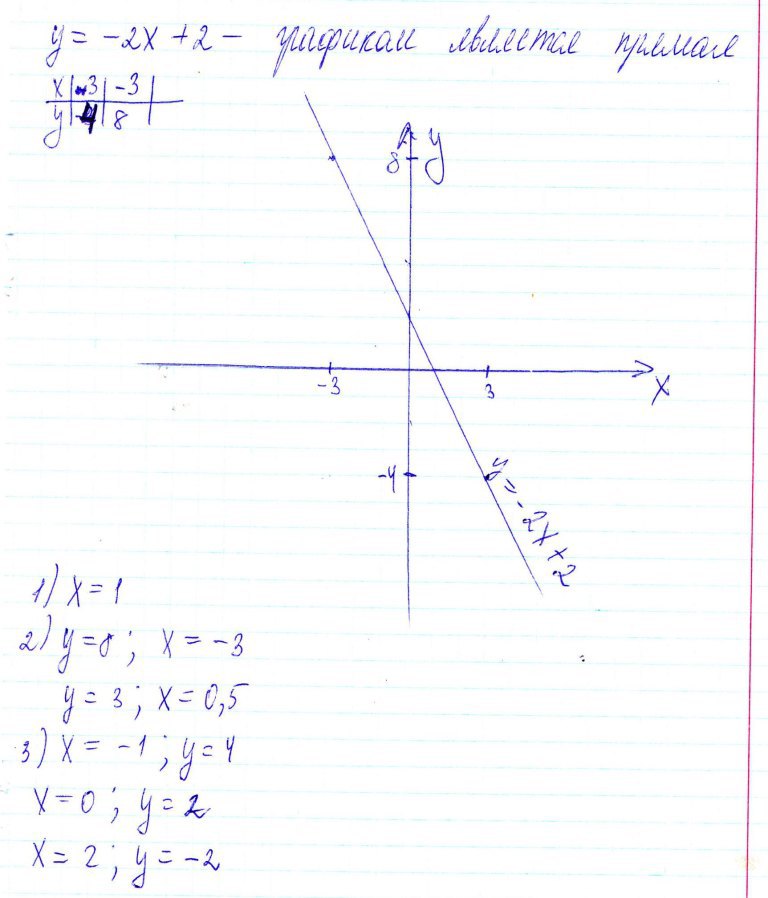 y = -2x + 2 - графиком является прямая
x | 3 | -3 |
y | -4 | 8 |
y
8
-3
3
x
-4
y = -2x + 2
1) x = 1
2) y = 8 ; x = -3
y = 3 ; x = 0,5
3) x = -1 ; y = 4
x = 0 ; y = 2
x = 2 ; y = -2